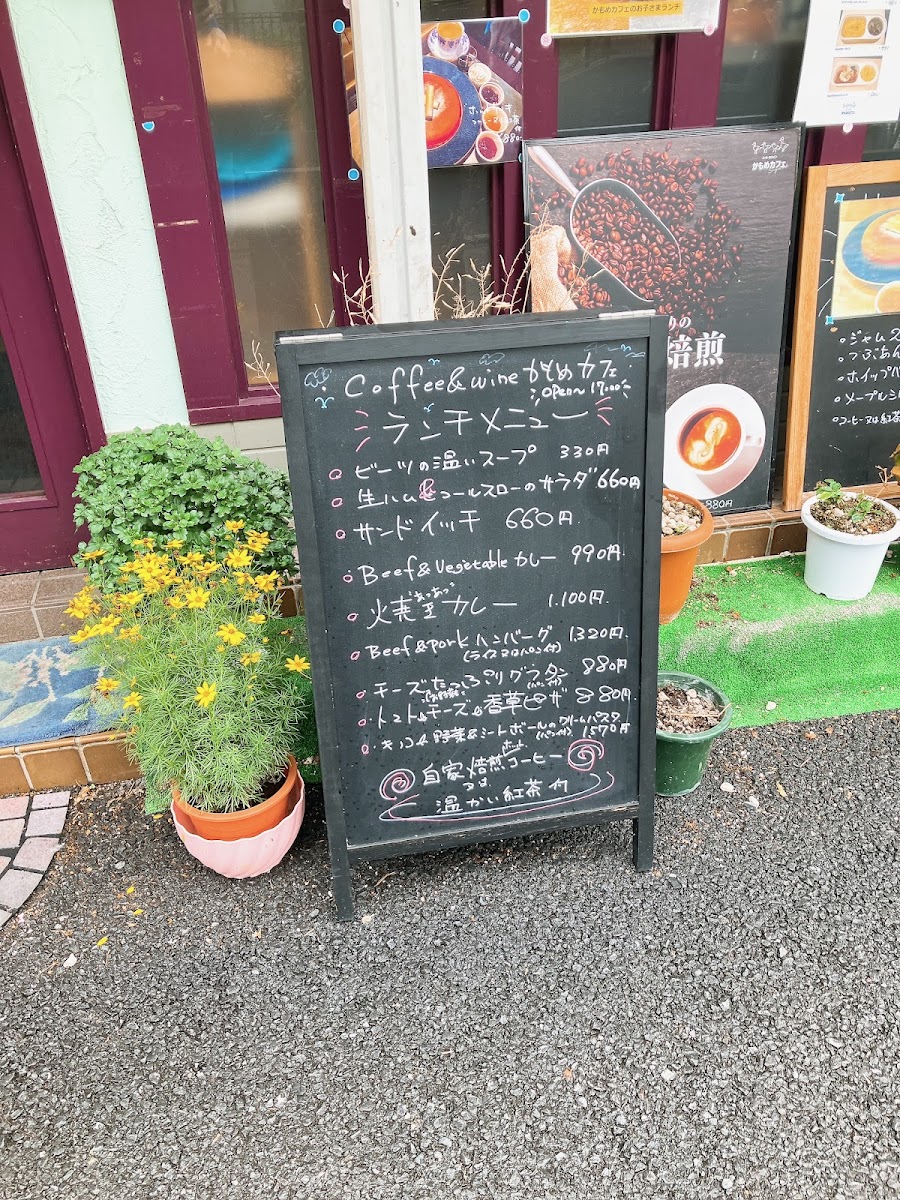 かもめカフェのお子さまランチ
880円
かもめカフェ
焙煎
880円
ジャム
つぶあん
ホイップ
メープルシ
コーヒー又は紅茶
Coffee&wine かもめカフェ
OPEN〜17:00
ランチメニュー
ビーツの温いスープ 330円
生ハム&コールスローのサラダ 660円
サンドイッチ 660円
Beef&Vegetable カレー 990円
カレー 1.100円
Beef&pork ハンバーグ 1320円
(ライス又はパン付)
チーズたっぷりグラタン 880円
(パン付)
トマト&チーズ&香草ピザ 880円
キノコ&野菜&ミートボールのクリームパスタ
(パン付) 1570円
自家焙煎コーヒー
ホット
又は
温かい紅茶付